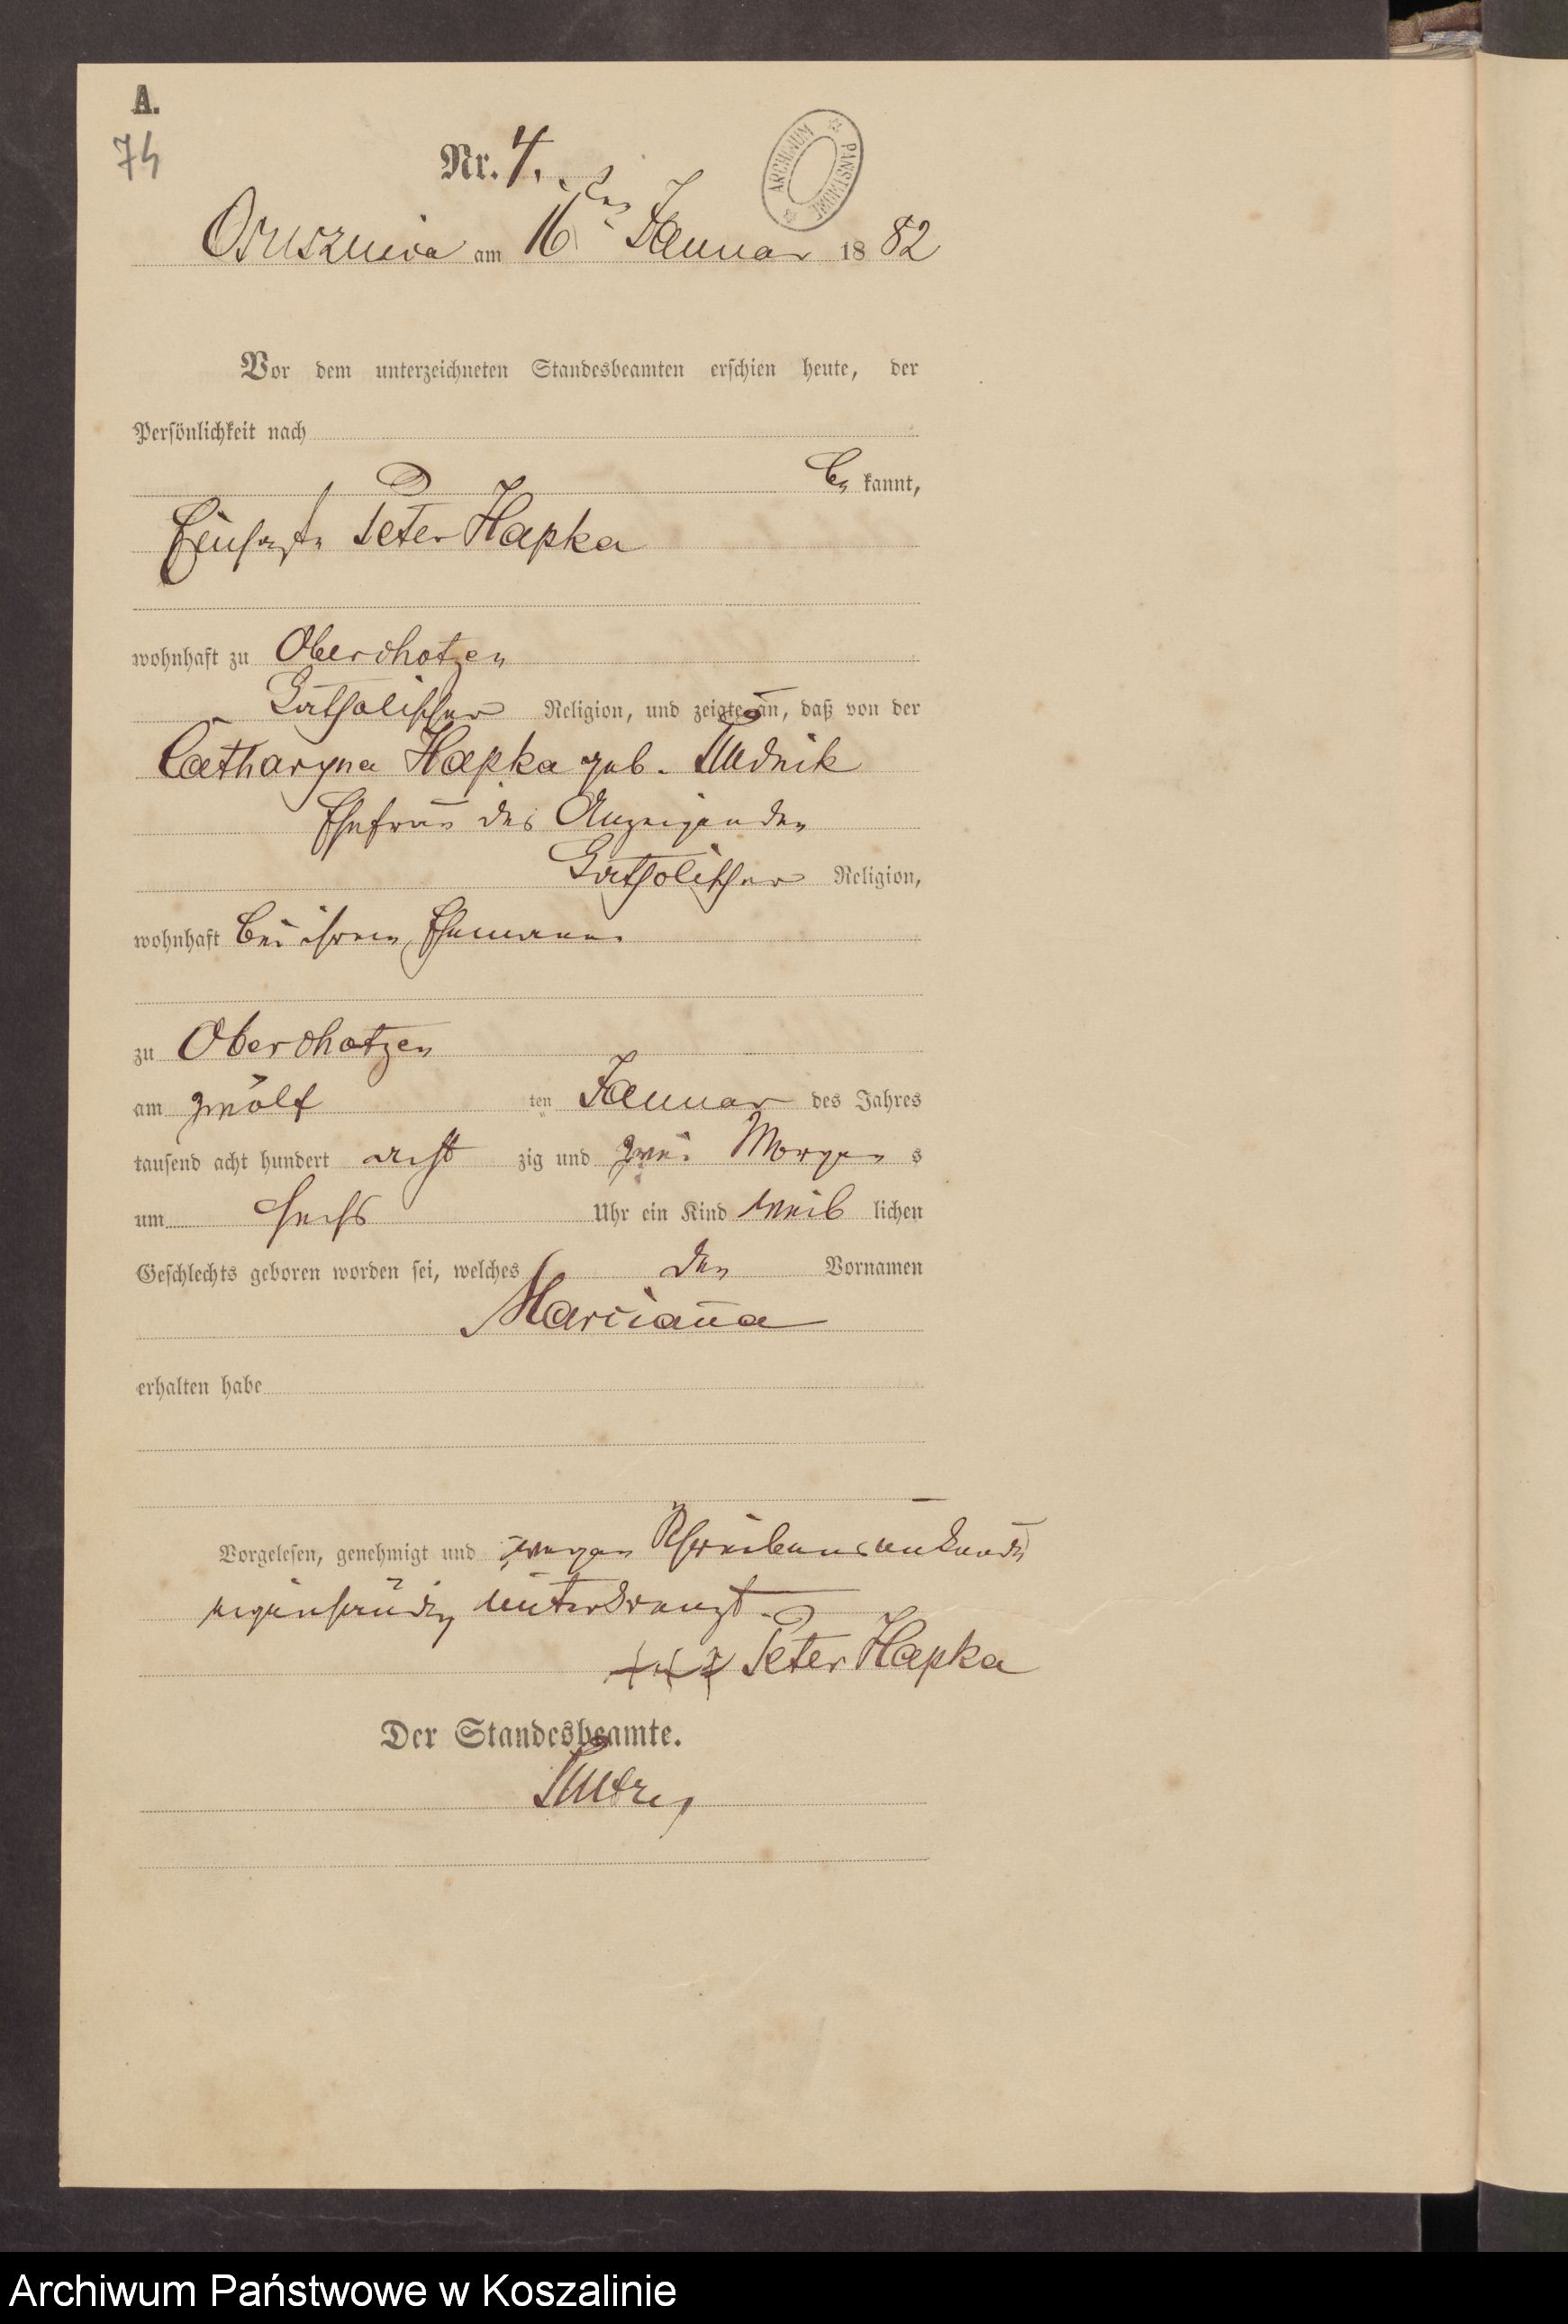 A.
74
Nr. 4.
ARCHIWUM PAŃSTWOWE
Osusznica am 16ten Januar 1882
Vor dem unterzeichneten Standesbeamten erschien heute, der
Persönlichkeit nach
be kannt,
Einsasse Peter Hapka
wohnhaft zu Oberchotzen
Catholischer Religion, und zeigte an, daß von der
Catharyna Hapka geb. Rudnik
Ehefrau des Anzeigenden
Catholischer Religion,
wohnhaft bei ihrem Ehemanne
zu Oberchotzen
am zwölf ten Januar des Jahres
tausend acht hundert acht zig und zwei Morgen s
um sechs Uhr ein Kind weib lichen
Geschlechts geboren worden sei, welches den Vornamen
Marcianna
erhalten habe
Vorgelesen, genehmigt und wegen Schreibensunkunde
eigenhändig unterkreuzt.
+++ Peter Hapka
Der Standesbeamte.
Archiwum Państwowe w Koszalinie